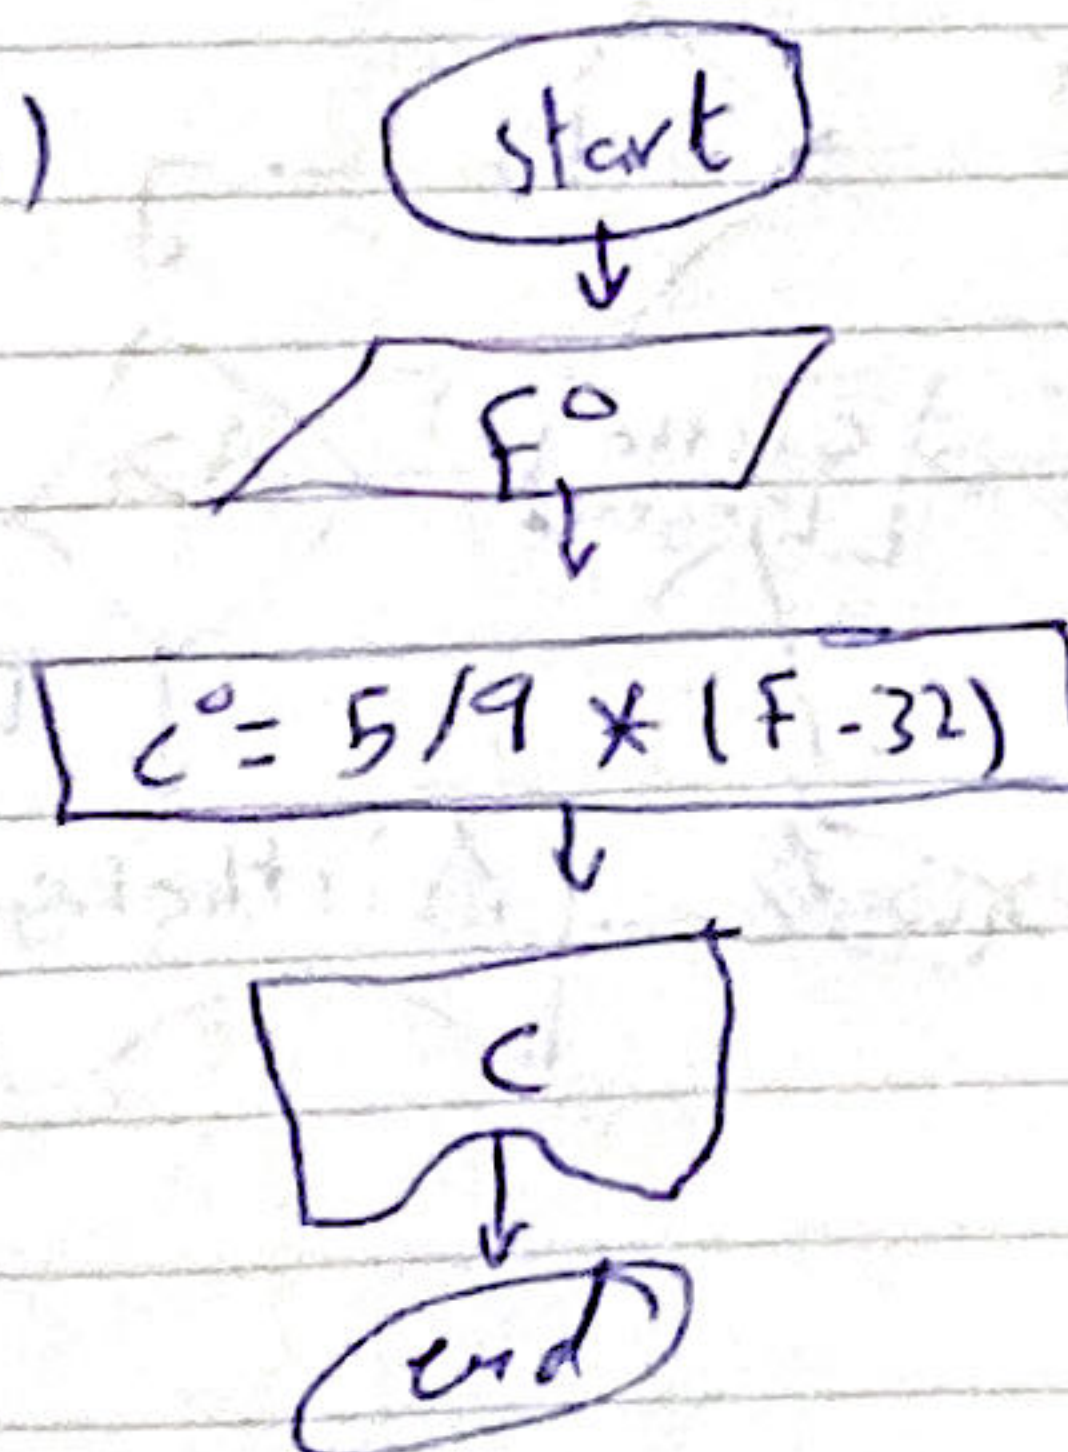 )
start
F°
c°= 5/9 * (F-32)
C
end